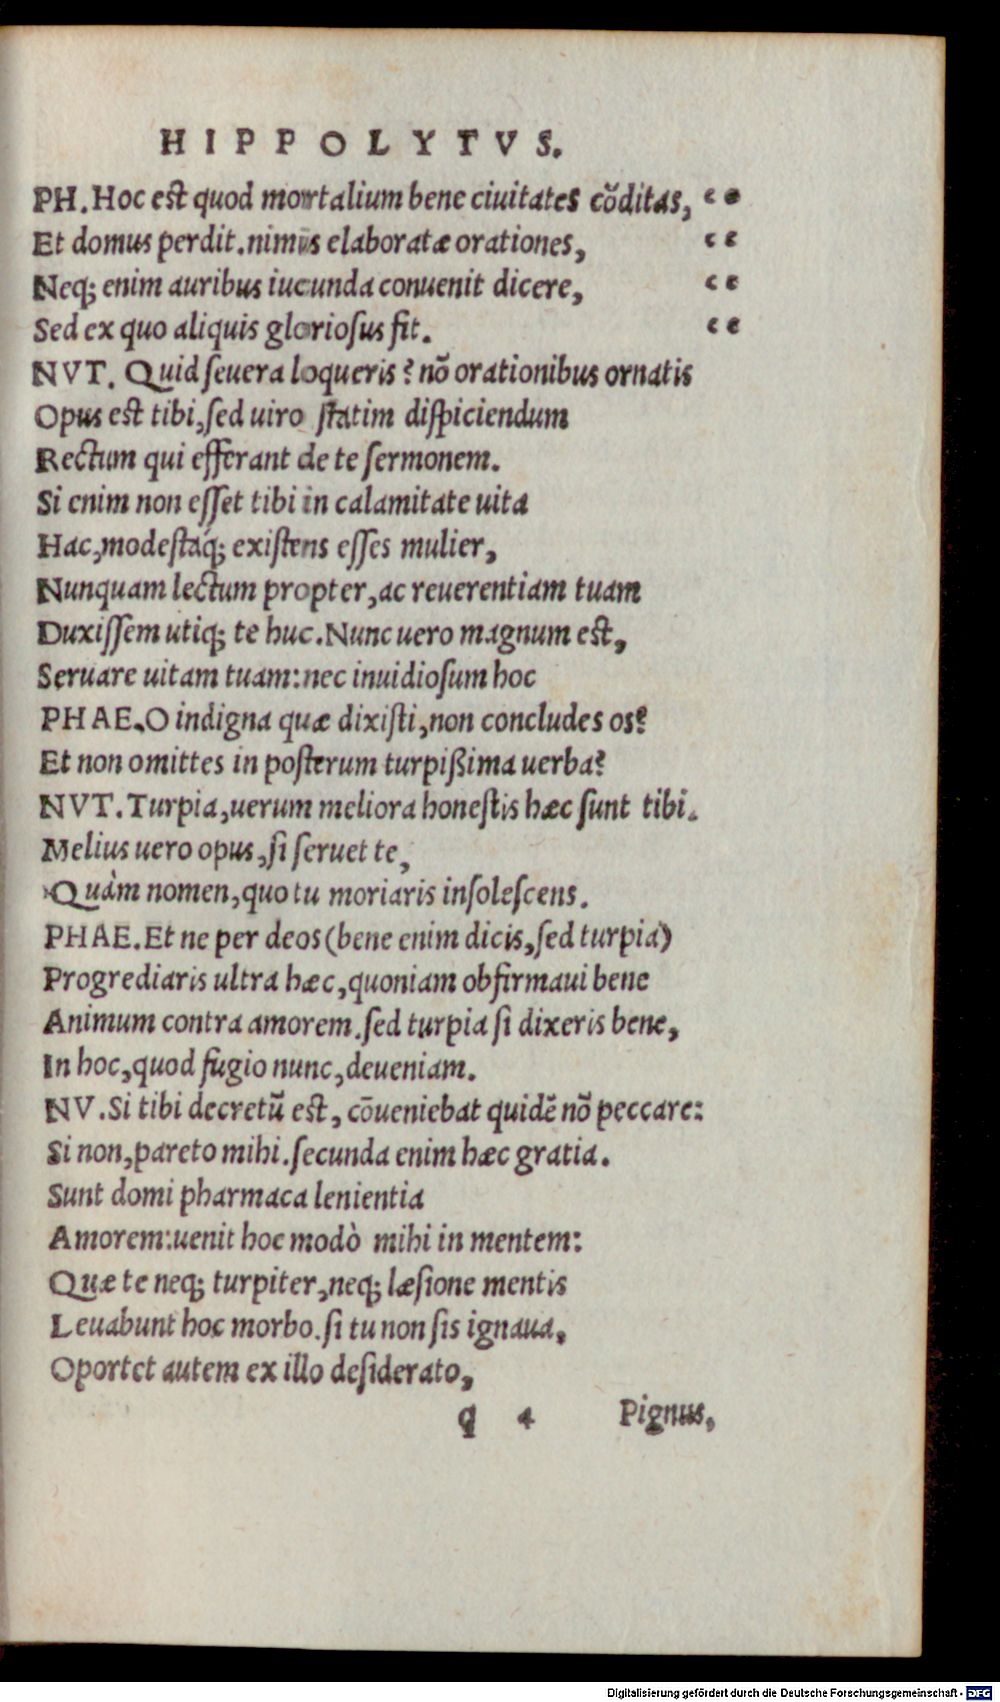 HIPPOLYTVS.
PH. Hoc est quod mortalium bene ciuitates cõditas, “
Et domus perdit. nimis elaboratæ orationes, “
Neq; enim auribus iucunda conuenit dicere, “
Sed ex quo aliquis gloriosus fit. “
NVT. Quid seuera loqueris? nõ orationibus ornatis
Opus est tibi, sed uiro statim dispiciendum
Rectum qui efferant de te sermonem.
Si enim non esset tibi in calamitate uita
Hac, modestáq; existens esses mulier,
Nunquam lectum propter, ac reuerentiam tuam
Duxissem utiq; te huc. Nunc uero magnum est,
Seruare uitam tuam: nec inuidiosum hoc
PHAE. O indigna quæ dixisti, non concludes os?
Et non omittes in posterum turpißima uerba?
NVT. Turpia, uerum meliora honestis hæc sunt tibi.
Melius uero opus, si seruet te,
Quàm nomen, quo tu moriaris insolescens.
PHAE. Et ne per deos (bene enim dicis, sed turpia)
Progrediaris ultra hæc, quoniam obfirmaui bene
Animum contra amorem. sed turpia si dixeris bene,
In hoc, quod fugio nunc, deueniam.
NV. Si tibi decretũ est, cõueniebat quidẽ nõ peccare:
Si non, pareto mihi. secunda enim hæc gratia.
Sunt domi pharmaca lenientia
Amorem: uenit hoc modò mihi in mentem:
Quæ te neq; turpiter, neq; læsione mentis
Leuabunt hoc morbo. si tu non sis ignaua,
Oportet autem ex illo desiderato,
q 4 Pignus,
Digitalisierung gefördert durch die Deutsche Forschungsgemeinschaft - DFG